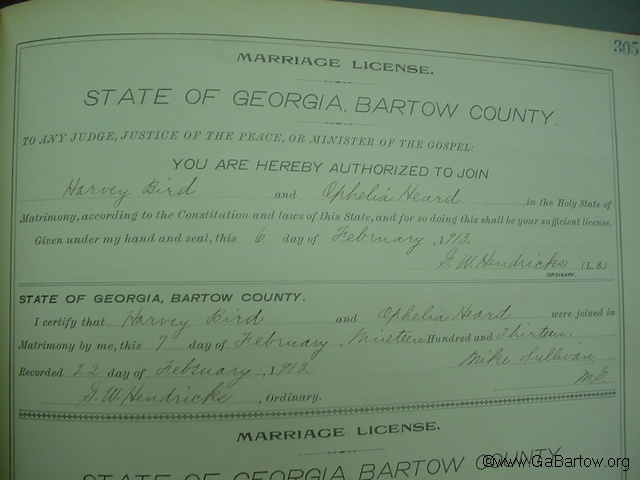 305
MARRIAGE LICENSE.
STATE OF GEORGIA, BARTOW COUNTY.
TO ANY JUDGE, JUSTICE OF THE PEACE, OR MINISTER OF THE GOSPEL:
YOU ARE HEREBY AUTHORIZED TO JOIN
Harvey Bird and Ophelia Heard in the Holy State of
Matrimony, according to the Constitution and laws of this State, and for so doing this shall be your sufficient license.
Given under my hand and seal, this 6 day of February, 1913.
G. W. Hendricks (L. S.)
ORDINARY.
STATE OF GEORGIA, BARTOW COUNTY.
I certify that Harvey Bird and Ophelia Heard were joined in
Matrimony by me, this 7 day of February, Nineteen Hundred and Thirteen.
Mike Sullivan,
M.G.
Recorded 22 day of February, 1913.
G. W. Hendricks, Ordinary.
MARRIAGE LICENSE.
STATE OF GEORGIA, BARTOW COUNTY.
©www.GaBartow.org